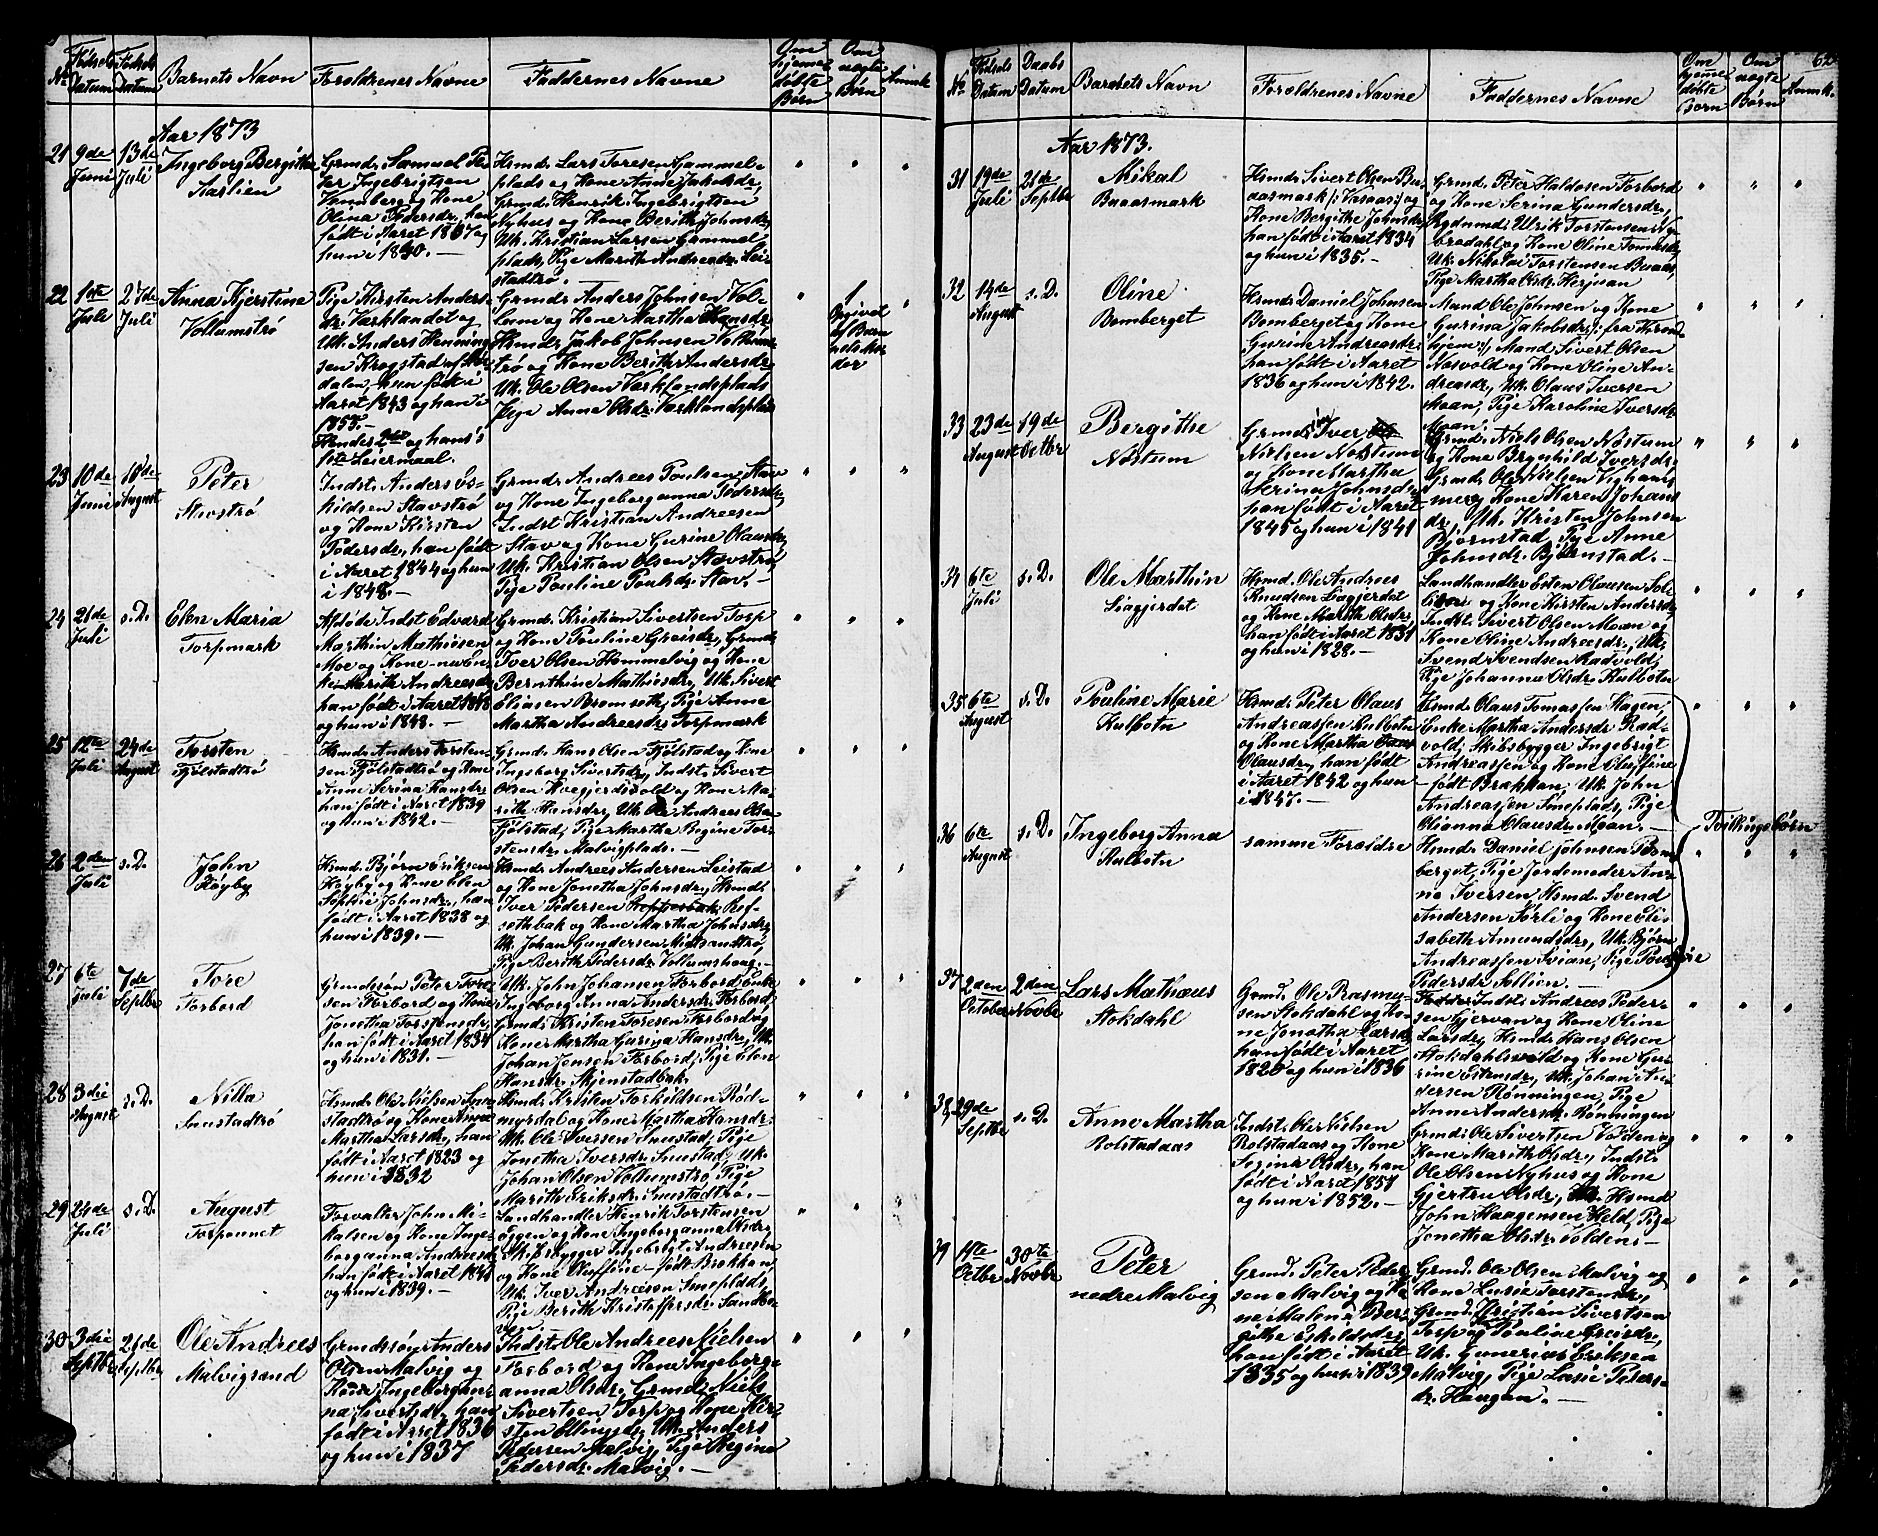 No. Fødsels Datum
Daabs Datum
Barnets Navn
Forældrenes Navne
Faddernes Navne
Om hjemmedøbte Børn
Om uægte Børn
Anmk.
Aar 1873
21 9de Juni 13de Juli
Ingeborg Bergithe
Aarlien
Grmd. Samuel Pe-
ter Ingebrigtsen
og Kone
Olina Pedersdr., han
født i Aaret 1807 og
hun i 1840.—
Hsmd. Lars Toresen Gammel-
plads og Kone Anne Jakobsdr.,
Grmd. Henrik Ingebrigtsen
Nyhus og Kone Berith Johnsdr.,
Uk. Kristian Larsen Gammel-
plads, Pige Marith Andreasdr. Lei-
stadtrø.
22 1ste Juli 27de Juli
Anna Kjerstine
Vollumstrø
Pige Kirsten Anders-
dr. Værklandet og
Uk. Anders Henning-
sen Krogstad af
dalen, hun født i
Aaret 1843 og han i
1855.—
Hendes 2det og hans's
1ste Leiermaal.
Grmd. Anders Johnsen Vol-
lem og Kone Martha Hansdr.
Hsmd. Jakob Johnsen Vollums-
trø og Kone Berith Andersdr.
Uk. Ole Olsen Værklandsplads
Pige Anne Olsdr. Værklandsplds
1 Opgivet af Barnets Moder
23 10de Juni 10de August
Peter
Stavstrø
Indst. Anders Os-
kildsen Stavstrø
og Kone Kirsten
Pedersdr., han født
i Aaret 1844 og hun
i 1848.—
Grmd. Andreas Poulsen Stav
og Kone Ingeborganna Pedersdr.,
Indst. Kristian Andreesen
Stav og Kone Gurine Olausdr.,
Uk. Kristian Olsen Stavstrø,
Pige Pauline Poulsdr. Stav.—
24 21de Juli s.D.
Elen Maria
Torpmark
Afdøde Indst. Edvard
Marthin Mathiesen
Moe og Kone—nu en-
ke, Marith Andreasdr.
han født i Aaret 1848
og hun i 1848.—
Grmd. Kristian Sivertsen Torp
og Kone Pauline Greisdr., Grmd.
Iver Olsen Hommelvig og Kone
Bernthine Mathisdr., Uk. Sivert
Eliasen Bromseth, Pige Anne
Martha Andreasdr. Torpmark
25 12te Juli 24de August
Torsten
Fjølstadtrø
Hsmd. Anders Torsten-
sen Fjølstadtrø og Kone
Anne Serina Hansdr.,
han født i Aaret 1839
og hun i 1842.—
Grmd. Hans Olsen Fjølstad og Kone
Ingeborg Sivertsdr., Indst. Sivert
Olsen Kvegjerdsvold og Kone Ma-
rith Hansdr., Uk. Ole Andreas Olsen
Fjølstad, Pige Martha Regine Tor-
stensdr. Malvigplads.—
26 2den Juli s.D.
John
Høyby
Hsmd. Bjørn Eriksen
Høyby og Kone Elen
Sophie Johnsdr., han
født i Aaret 1838 og
hun i 1839.—
Hsmd. Andreas Andersen Leistad
og Kone Jonetha Johnsdr., Hsmd.
Iver Pedersen Ref-
sethbak og Kone Martha Johnsdr.,
Uk. Johan Gundersen Midtsandtrø,
Pige Berith Pedersdr. Vollumshaug.—
27 6te Juli 7de Septbr
Tore
Forbord
Grmdssøn Peter Tore-
sen Forbord og Kone
Jonetha Torstensdr.,
han født i Aaret 1834
og hun i 1831.—
Uk. John Johansen Forbord, Enke
Ingeborg Anna Andersdr. Forbord
Grmd. Kristen Toresen Forbord og
Kone Martha Gurina Hansdr., Uk.
Johan Jensen Forbord, Pige Elen
Hansdr. Skjenstadbak.
28 3die August s.D.
Nilla
Snustadtrø
Hsmd. Ole Nielsen Snu-
stadtrø og Kone Anne
Martha Larsdr., han
født i Aaret 1823 og
hun i 1832
Hsmd. Kristen Torkildsen Rød-
myrdal og Kone Martha Hansdr.
Uk. Ole Iversen Snustad, Pige
Jonetha Iversdr. Snustad, Uk.
Johan Olsen Vollumstrø, Pige
Marith Eriksdr. Snustadtrø.—
29 24de Juli s.D.
August
Torpounet
Forvalter John Mi-
kalsen og Kone Inge-
borganna Andreasdr.
han født i Aaret 1841
og hun i 1839.—
Landhandler Henrik Torstensen
Oggen og Kone Ingeborganna Olsdr.,
Skibsbygger Ingebrigt Andreesen
og Kone Oleffine—født Brækkan
Uk. Iver Andreesen Sneplads,
Pige Berith Kristoffersdr. Sandbo-
30 3die Septbr 21de Septbr
Ole Andreas
Malvigsand
Grmdssøn Anders
Olsen Malvig og
Kone Ingeborgan-
na Sivertsdr., han
født i Aaret 1836
og hun i 1837
Indst. Ole Andreas Nielsen
Forbord og Kone Ingeborg-
anna Olsdr., Grmd. Niels
Sivertsen Torp og Kone Kir-
sten Ellingsdr., Uk. Anders
Pedersen Malvig, Pige Regina
Pedersdr. Malvig.—
62
No. Fødsels Datum
Daabs Datum
Barnets Navn
Forældrenes Navne
Faddernes Navne
Om hjemmedøbte Børn
Om uægte Børn
Anmk.
Aar 1873.
31 19de Juli 21de Septbr
Mikal
Buaasmark
Hsmd. Sivert Olsen Bu-
aasmark /: Vasaas :/ og
Kone Bergithe Johnsdr.,
han født i Aaret 1834
og hun i 1835.—
Grmd. Peter Haldosen Forbord
og Kone Serina Gundersdr.,
Bygdsmd. Ulrik Torstensen
brodahl og Kone Oline Tomasdr.
Uk. Nikolai Torstensen Buaas,
Pige Martha Olsdr. Herjuan
32 14de August s.D.
Oline
Bomberget
Hsmd. Daniel Johnsen
Bomberget og Kone
Gurine Andreasdr.
han født i Aaret
1836 og hun i 1842.
Mand Ole Johnsen og Kone
Gurina Jakobsdr. /: fra Thrond-
hjem :/, Mand Sivert Olsen
Næsvold og Kone Oline An-
dreasdr., Uk. Olaus Iversen
Moan, Pige Karoline Iversdr.
Moan.
33 23de August 19de Octbr
Bergithe
Nøstum
Grmd. Iver
Nielsen Nøstum
og Kone Martha
Serina Johnsdr.
han født i Aaret
1845 og hun i 1841
Grmd. Niels Olsen Nøstum
og Kone Brynhild Iversdr.
Grmd. Ole Nielsen Vigham-
mer og Kone Karen Johans-
dr., Uk. Kristen Johnsen
Bjørnstad, Pige Anne
Johnsdr. Bjørnstad.—
34 6te Juli s.D.
Ole Marthin
Liagjerdet
Hsmd. Ole Andreas
Knudsen Liagjerdet
og Kone Marith Olsdr.,
han født i Aaret 1831
og hun i 1828.—
Landhandler Esten Olausen Sol-
og Kone Kirsten Andersdr.
Indst. Sivert Olsen Moan og
Kone Oline Andreasdr., Uk.
Svend Svendsen Rødvold,
Pige Johanna Olsdr. Kulbotn
35 6te August s.D.
Pauline Marie
Kulbotn
Hsmd. Peter Olaus
Andreassen Kulbotn
og Kone Martha
Olausdr., han født
i Aaret 1842 og hun
i 1847.—
Hsmd. Olaus Tomassen Hagen,
Enke Martha Andersdr. Rød-
vold, Skibsbygger Ingebrigt
Andreassen og Kone Oleffine
—født Brækkan, Uk. John
Andreassen Sneplads, Pige
Olianna Olausdr. Moan.—
Tvillingebørn
36 6te August s.D.
Ingeborg Anna
Kulbotn
samme Forældre
Hsmd. Daniel Johnsen Bom-
berget, Pige Jordemoder An-
ne Iversen, Hsmd. Svend
Andersen Sørli og Kone Eli-
sabeth Amundsdr., Uk. Bjørn
Andreassen Svian, Pige
Pedersdr. Sollien.—
37 2den October 2den Novbr
Lars Mathæus
Stokdahl
Grmd. Ole Rasmu-
sen Stokdahl og Ko-
ne Jonetha Larsdr.
han født i Aaret
1820 og hun i 1836
Indst. Andreas Peder-
sen Gjervan og Kone Oline
Larsdr., Hsmd. Hans Olsen
Stokdahlsvold og Kone Gu-
rine Estensdr., Uk. Johan An-
dersen Rønningen, Pige
Anne Andersdr. Rønningen
38 29de Septbr s.D.
Anne Martha
Bolstadaas
Indst. Ole Nielsen
Bolstadaas og Kone
Regina Olsdr., han
født i Aaret 1851
og hun i 1852.—
Grmd. Ole Sivertsen Volden og
Kone Marith Olsdr., Indst.
Ole Olsen Nyhus og Kone
Gjertru Olsdr., Hsmd.
John Haagensen Held, Pige
Jonetha Olsdr. Volden.—
39 11te Octbr 30te Novbr
Peter
nedre Malvig
Grmd. Peter Peder-
sen Malvig og Ko-
ne Malena Ber-
githe Eskildsdr.
han født i Aaret
1835 og hun i 1839
Grmd. Ole Olsen Malvig og
Kone Lusie Torstensdr.,
Grmd. Kristian Sivertsen
Torp og Pauline Greisdr.,
Uk. Gunerius Eriksen
Malvig, Pige Lasie Peters-
dr. Haugan.—